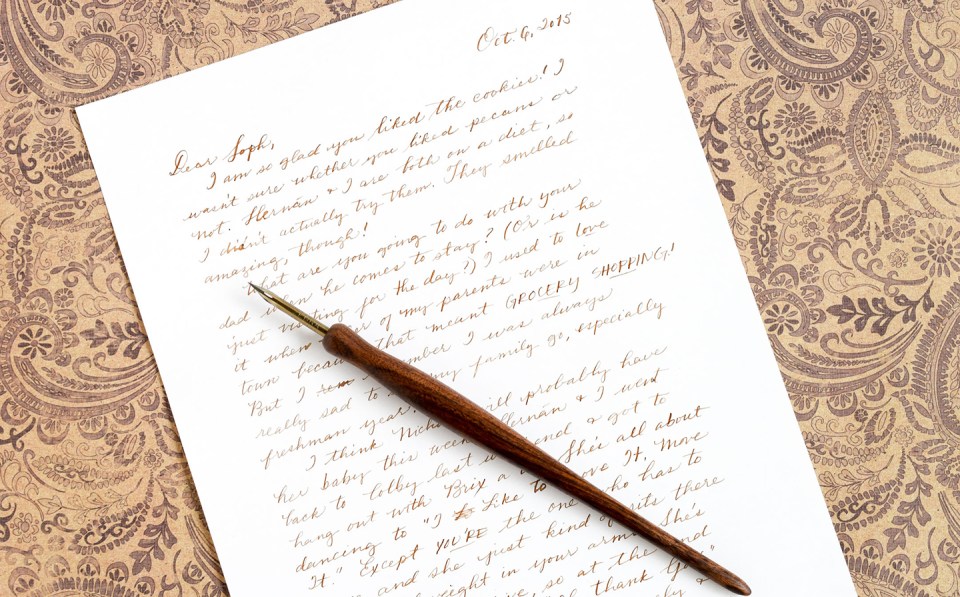 Oct. 6, 2015
Dear Soph,
I am so glad you liked the cookies! I
wasn't sure whether you liked pecans or
not. Hernán & I are both on a diet, so
I didn't actually try them. They smelled
amazing, though!
What are you going to do with your
dad when he comes to stay? (Or is he
just visiting for the day?) I used to love
it when of my parents were in
town because that meant GROCERY SHOPPING!
But I I was always
really sad to my family go, especially
freshman year.
I think will probably have
her baby this Hernán & I went
back to Colby last & got to
hang out with Brix a She's all about
dancing to "I Like to Move It, Move
It." Except YOU'RE the one who has to
and she just kind of sits there
in your arms. She's
so at the end
thank
&